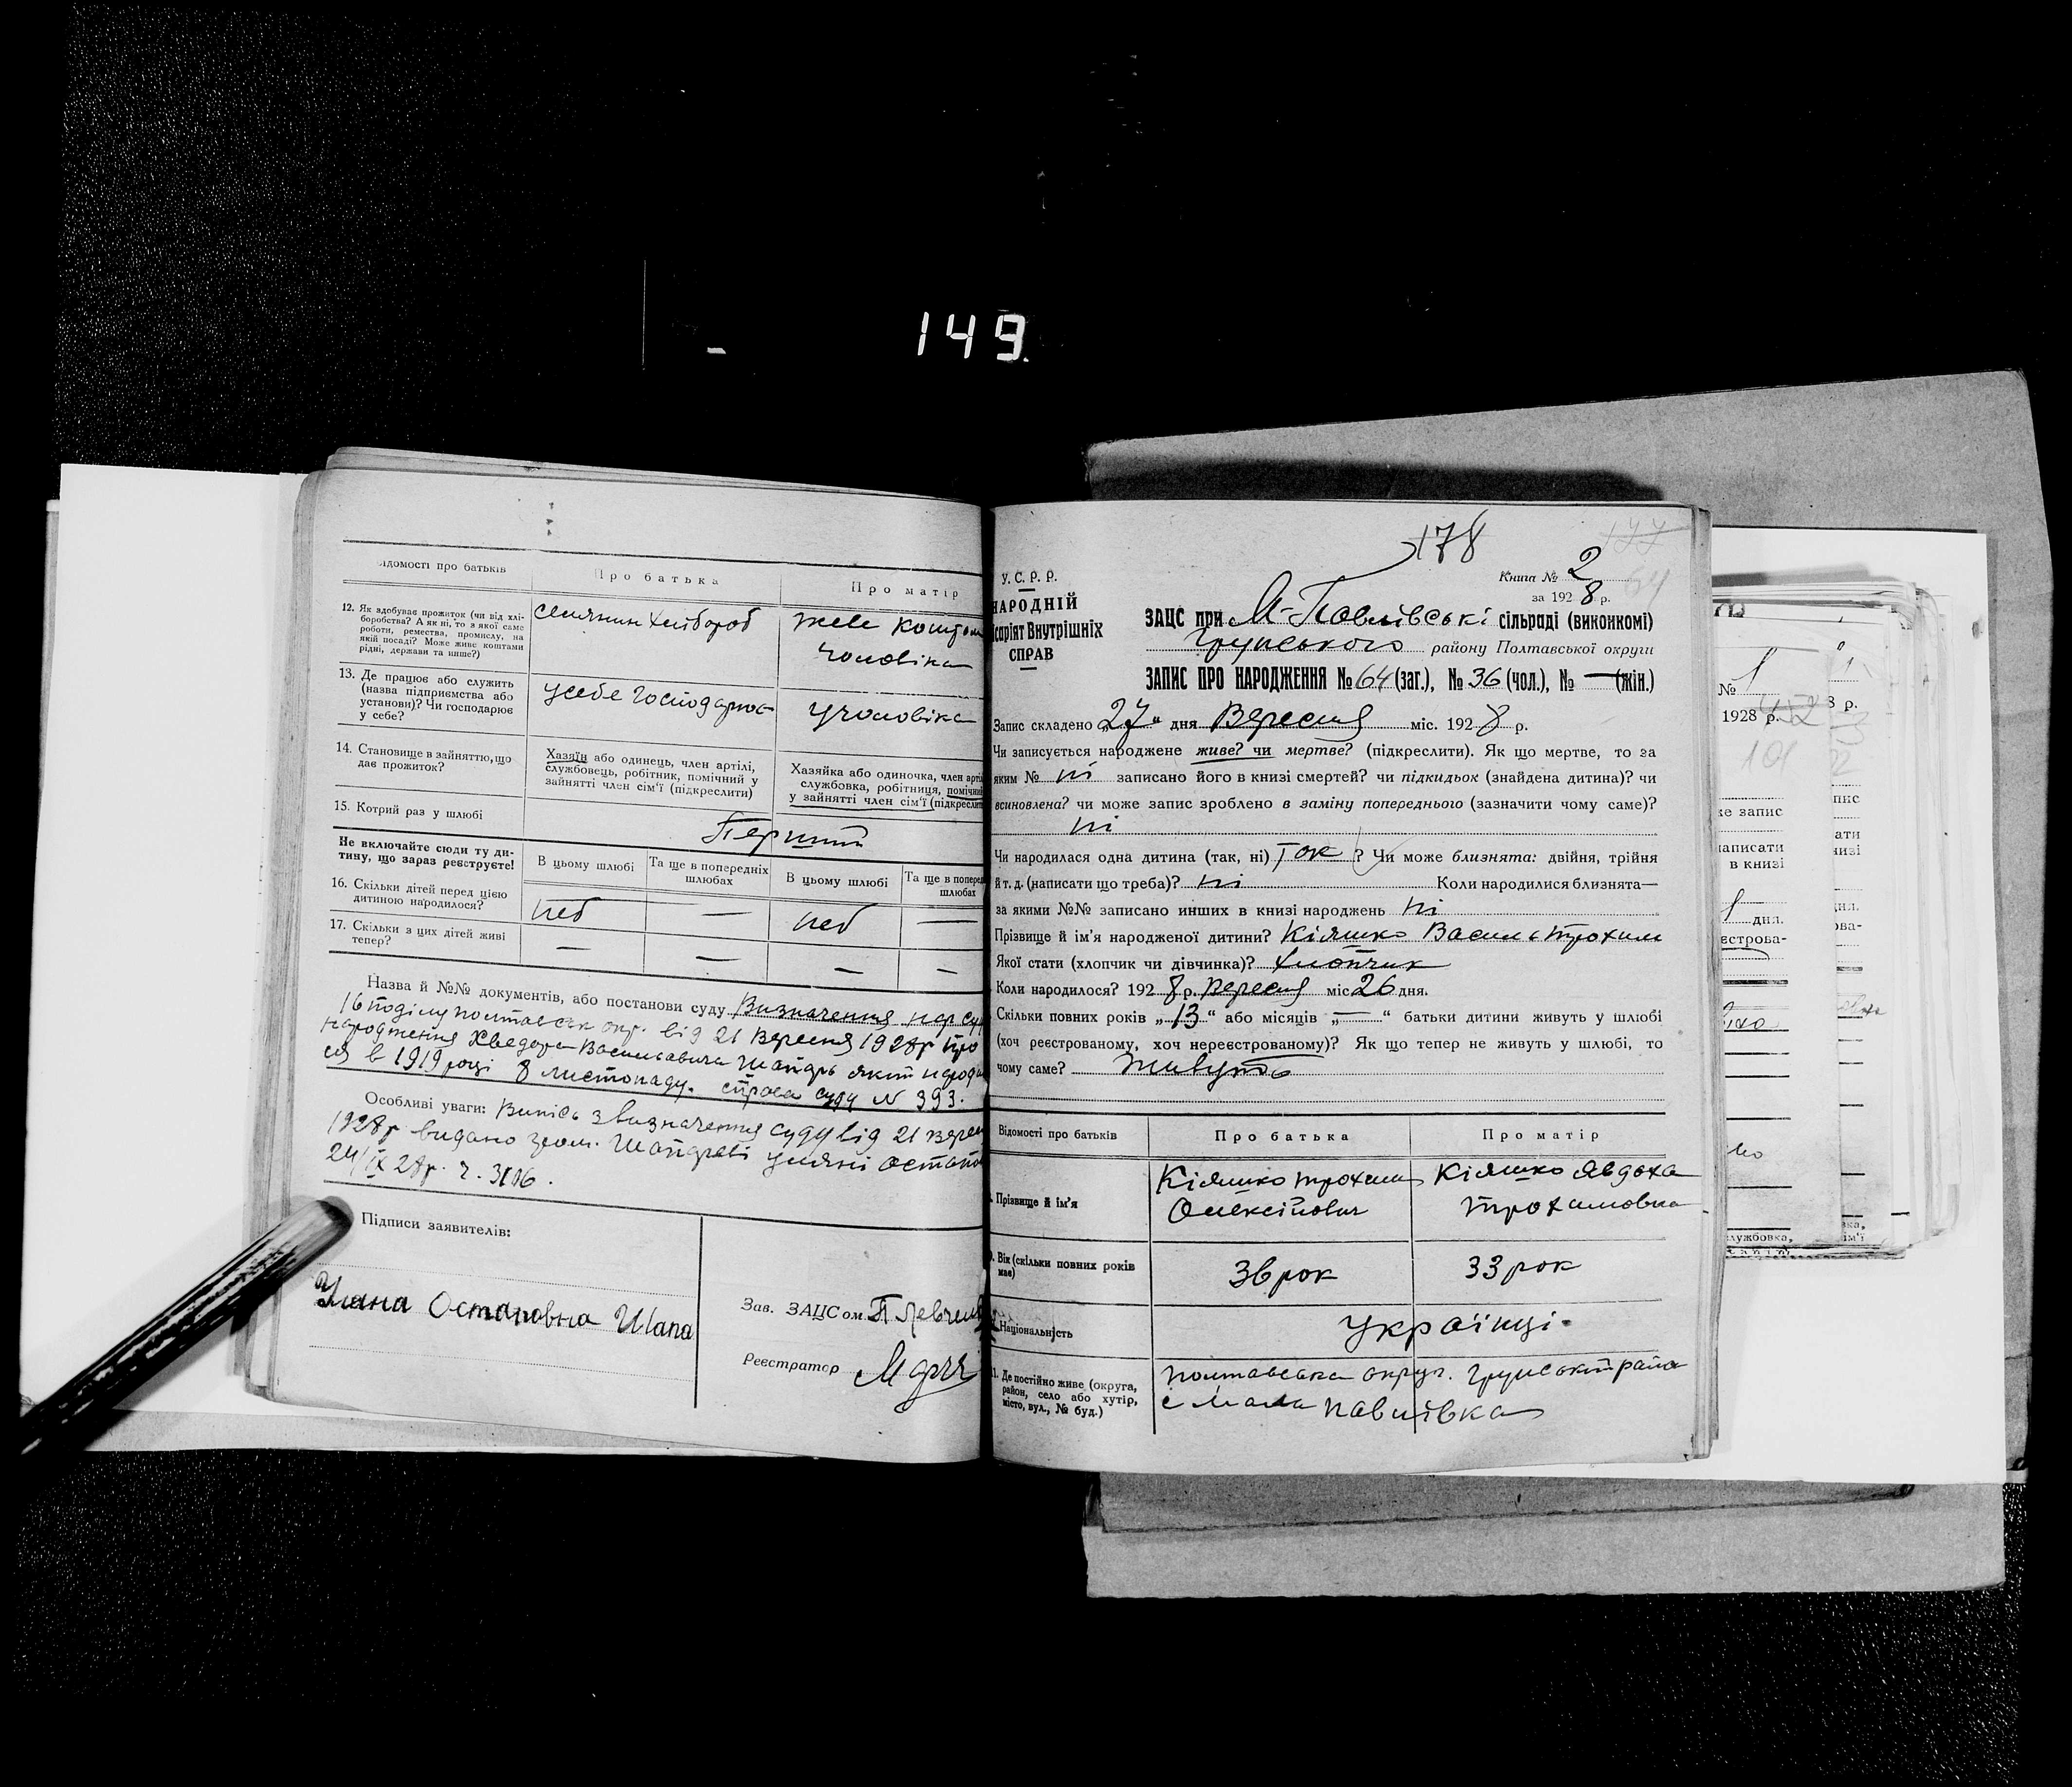 149.
Відомості про батьків
Про батька
Про матір
12. Як здобуває прожиток (чи від хлі-
боробства? А як ні, то з якої саме
роботи, ремества, промислу, на
якій посаді? Може живе коштами
рідні, держави та инше?)
селянин хлібороб
живе коштом
чоловіка
13. Де працює або служить
(назва підприємства або
установи)? Чи господарює
у себе?
усебе господарює
учоловіка
14. Становище в зайняттю, що
дає прожиток?
Хазяїн або одинець, член артілі,
службовець, робітник, помічний у
зайнятті член сім'ї (підкреслити)
Хазяйка або одиночка, член артілі
службовка, робітниця, помічний
у зайнятті член сім'ї (підкреслити
15. Котрий раз у шлюбі
Перший
Не включайте сюди ту ди-
тину, що зараз реєструєте!
В цьому шлюбі
Та ще в попередніх
шлюбах
В цьому шлюбі
Та ще в поперед
шлюбах
16. Скільки дітей перед цією
дитиною народилося?
неб — неб —
17. Скільки з цих дітей живі
тепер?
— — — —
Назва й №№ документів, або постанови суду Визначення нар су
16 поділу полтавськ окр. від 21 Вересня 1928р про
народження Хведора Васильовича Шапдрь який народи
ся в 1919 році 8 листопаду. справа суду N 393.
Особливі уваги: Випісь з визначення суду від 21 верес
1928р видано гром. Уляні Остапо
24/IX 28р. ч. 3106.
Підписи заявителів:
Уляна Остаповна Шапа
Зав. ЗАЦСом П Левчен
Реєстратор
178
177
У. С. Р. Р.
НАРОДНІЙ
саріят Внутрішніх
СПРАВ
Книга № 2
64
за 1928 р.
ЗАЦС при М-Павлівські сільраді (виконкомі)
Грунського району Полтавської округи
ЗАПИС ПРО НАРОДЖЕННЯ № 64 (заг.), № 36 (чол.), № — (жін.)
Запис складено „27“ дня Вересня міс. 1928 р.
Чи записується народжене живе? чи мертве? (підкреслити). Як що мертве, то за
яким № ні записано його в книзі смертей? чи підкидьок (знайдена дитина)? чи
всиновлена? чи може запис зроблено в заміну попереднього (зазначити чому саме)?
ні
Чи народилася одна дитина (так, ні) Так ? Чи може близнята: двійня, трійня
й т. д. (написати що треба)? ні Коли народилися близнята—
за якими №№ записано инших в книзі народжень ні
Прізвище й ім'я народженої дитини? Кіяшко Василь Трохим
Якої стати (хлопчик чи дівчинка)? хлопчик
Коли народилося? 1928 р. Вересня міс 26 дня.
Скільки повних років „13“ або місяців „—“ батьки дитини живуть у шлюбі
(хоч реєстрованому, хоч нереєстрованому)? Як що тепер не живуть у шлюбі, то
чому саме? Живуть
Відомості про батьків
Про батька
Про матір
Прізвище й ім'я
Кіяшко Трохим
Олексійович
Кіяшко Явдоха
Трохимовна
Вік (скільки повних років
має)
36 рок
33 рок
Національність
Українці.
Де постійно живе (округа,
район, село або хутір,
місто, вул., № буд.)
Полтавська округ. Грунський райо
с Мала Павлівка
№ 1
1928 р.
8 р.
101
же запис
написати
в книзі
дня.
єстрова-
службовка,
пис
ати
низі
дня.
ова-
вка,
ім'ї